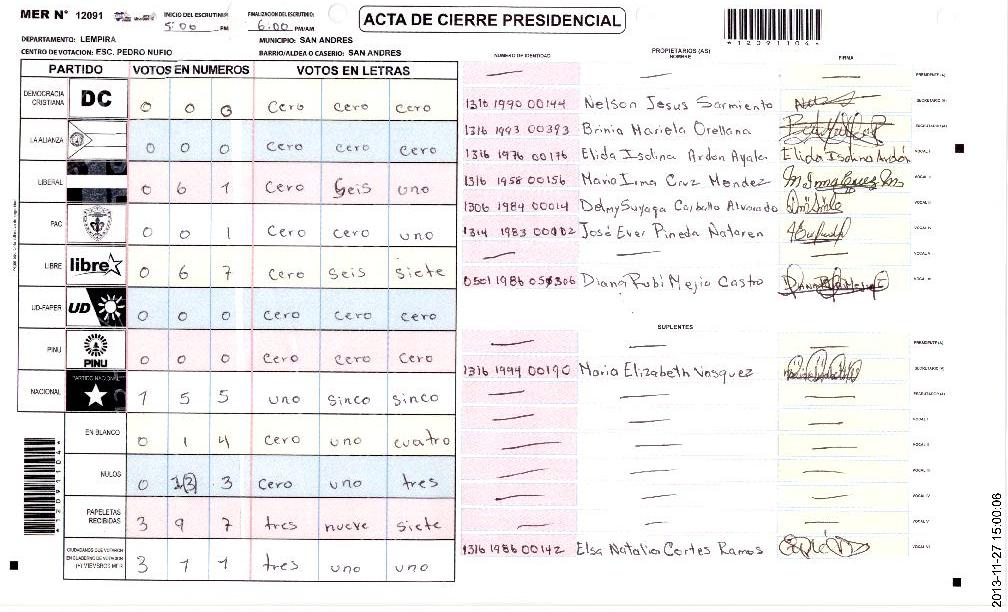 MER N° 12091
INICIO DEL ESCRUTINIO
5:06 PM
FINALIZACION DEL ESCRUTINIO:
6:00 PM/AM
ACTA DE CIERRE PRESIDENCIAL
*12091104*
DEPARTAMENTO: LEMPIRA
MUNICIPIO: SAN ANDRES
CENTRO DE VOTACION: ESC. PEDRO NUFIO
BARRIO/ALDEA O CASERIO: SAN ANDRES
PARTIDO VOTOS EN NUMEROS VOTOS EN LETRAS
DEMOCRACIA CRISTIANA DC 0 0 0 cero cero cero
LA ALIANZA 0 0 0 cero cero cero
LIBERAL 0 6 1 cero seis uno
PAC 0 0 1 cero cero uno
LIBRE libre 0 6 7 cero seis siete
UD-FAPER UD 0 0 0 cero cero cero
PINU PINU 0 0 0 cero cero cero
NACIONAL PARTIDO NACIONAL 1 5 5 uno sinco sinco
EN BLANCO 0 1 4 cero uno cuatro
NULOS 0 1(3) 3 cero uno tres
PAPELETAS RECIBIDAS 3 9 7 tres nueve siete
CIUDADANOS QUE VOTARON EN CUADERNO DE VOTACION (+) MIEMBROS MER 3 1 1 tres uno uno
NUMERO DE IDENTIDAD PROPIETARIOS (AS) NOMBRE FIRMA
PRESIDENTE (A)
1316 1990 00144 Nelson Jesus Sarmiento SECRETARIO (A)
1316 1993 00393 Brinia Mariela Orellana ESCRUTADOR (A)
1316 1976 00176 Elida Isolina Ardon Ayala Elida Isolina Ardón VOCAL I
1316 1958 00156 Maria Irma Cruz Mendez VOCAL II
1306 1984 00014 Delmy Suyapa Carballo Alvarado VOCAL III
1314 1983 00102 José Ever Pineda Nataren VOCAL IV
VOCAL V
0501 1986 05306 Diana Rubi Mejia Castro VOCAL VI
SUPLENTES
PRESIDENTE (A)
1316 1994 00190 Maria Elizabeth Vasquez SECRETARIO (A)
ESCRUTADOR (A)
VOCAL I
VOCAL II
VOCAL III
VOCAL IV
VOCAL V
1316 1986 00142 Elsa Natalia Cortes Ramos VOCAL VI
*12091104*
2013-11-27 15:00:06